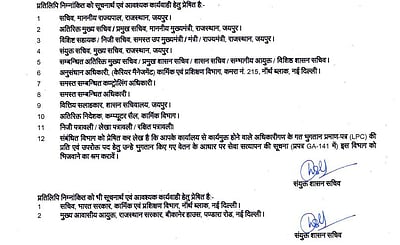 प्रतिलिपि निम्नांकित को सूचनार्थ एवं आवश्यक कार्यवाही हेतु प्रेषित है:-
1 सचिव, माननीय राज्यपाल, राजस्थान, जयपुर।
2 अतिरिक्त मुख्य सचिव / प्रमुख सचिव, माननीय मुख्यमंत्री, राजस्थान, जयपुर।
3 विशिष्ट सहायक / निजी सचिव, समस्त उप मुख्यमंत्री / मंत्री / राज्यमंत्री, राजस्थान, जयपुर।
4 संयुक्त सचिव, मुख्य सचिव, राजस्थान, जयपुर।
5 सम्बन्धित अतिरिक्त मुख्य सचिव / प्रमुख शासन सचिव / शासन सचिव / सम्भागीय आयुक्त / विशिष्ट शासन सचिव।
6 अनुसंधान अधिकारी, (केरियर मैनेजमेंट) कार्मिक एवं प्रशिक्षण विभाग, कमरा नं. 215, नॉर्थ ब्लाक, नई दिल्ली।
7 समस्त सम्बन्धित कण्ट्रोलिंग अधिकारी।
8 समस्त सम्बन्धित अधिकारी।
9 वित्तिय सलाहकार, शासन सचिवालय, जयपुर।
10 अतिरिक्त निदेशक, कम्प्यूटर सैल, कार्मिक विभाग।
11 निजी पत्रावली / लेखा पत्रावली / रक्षित पत्रावली।
12 संबंधित विभाग को प्रेषित कर लेख है कि आपके कार्यालय से कार्यमुक्त होने वाले अधिकारीगण के गत भुगतान प्रमाण-पत्र (LPC) की
प्रति एवं उपरोक्त पद हेतु उन्हे भुगतान किए गए वेतन के आधार पर सेवा सत्यापन की सूचना (प्रपत्र GA-141 में) इस विभाग को
भिजवाने का श्रम करावें।
संयुक्त शासन सचिव
प्रतिलिपि निम्नांकित को भी सूचनार्थ एवं आवश्यक कार्यवाही हेतु प्रेषित है:-
1 सचिव, भारत सरकार, कार्मिक एवं प्रशिक्षण विभाग, नॉर्थ ब्लाक, नई दिल्ली।
2 मुख्य आवासीय आयुक्त, राजस्थान सरकार, बीकानेर हाउस, पण्डारा रोड, नई दिल्ली।
संयुक्त शासन सचिव